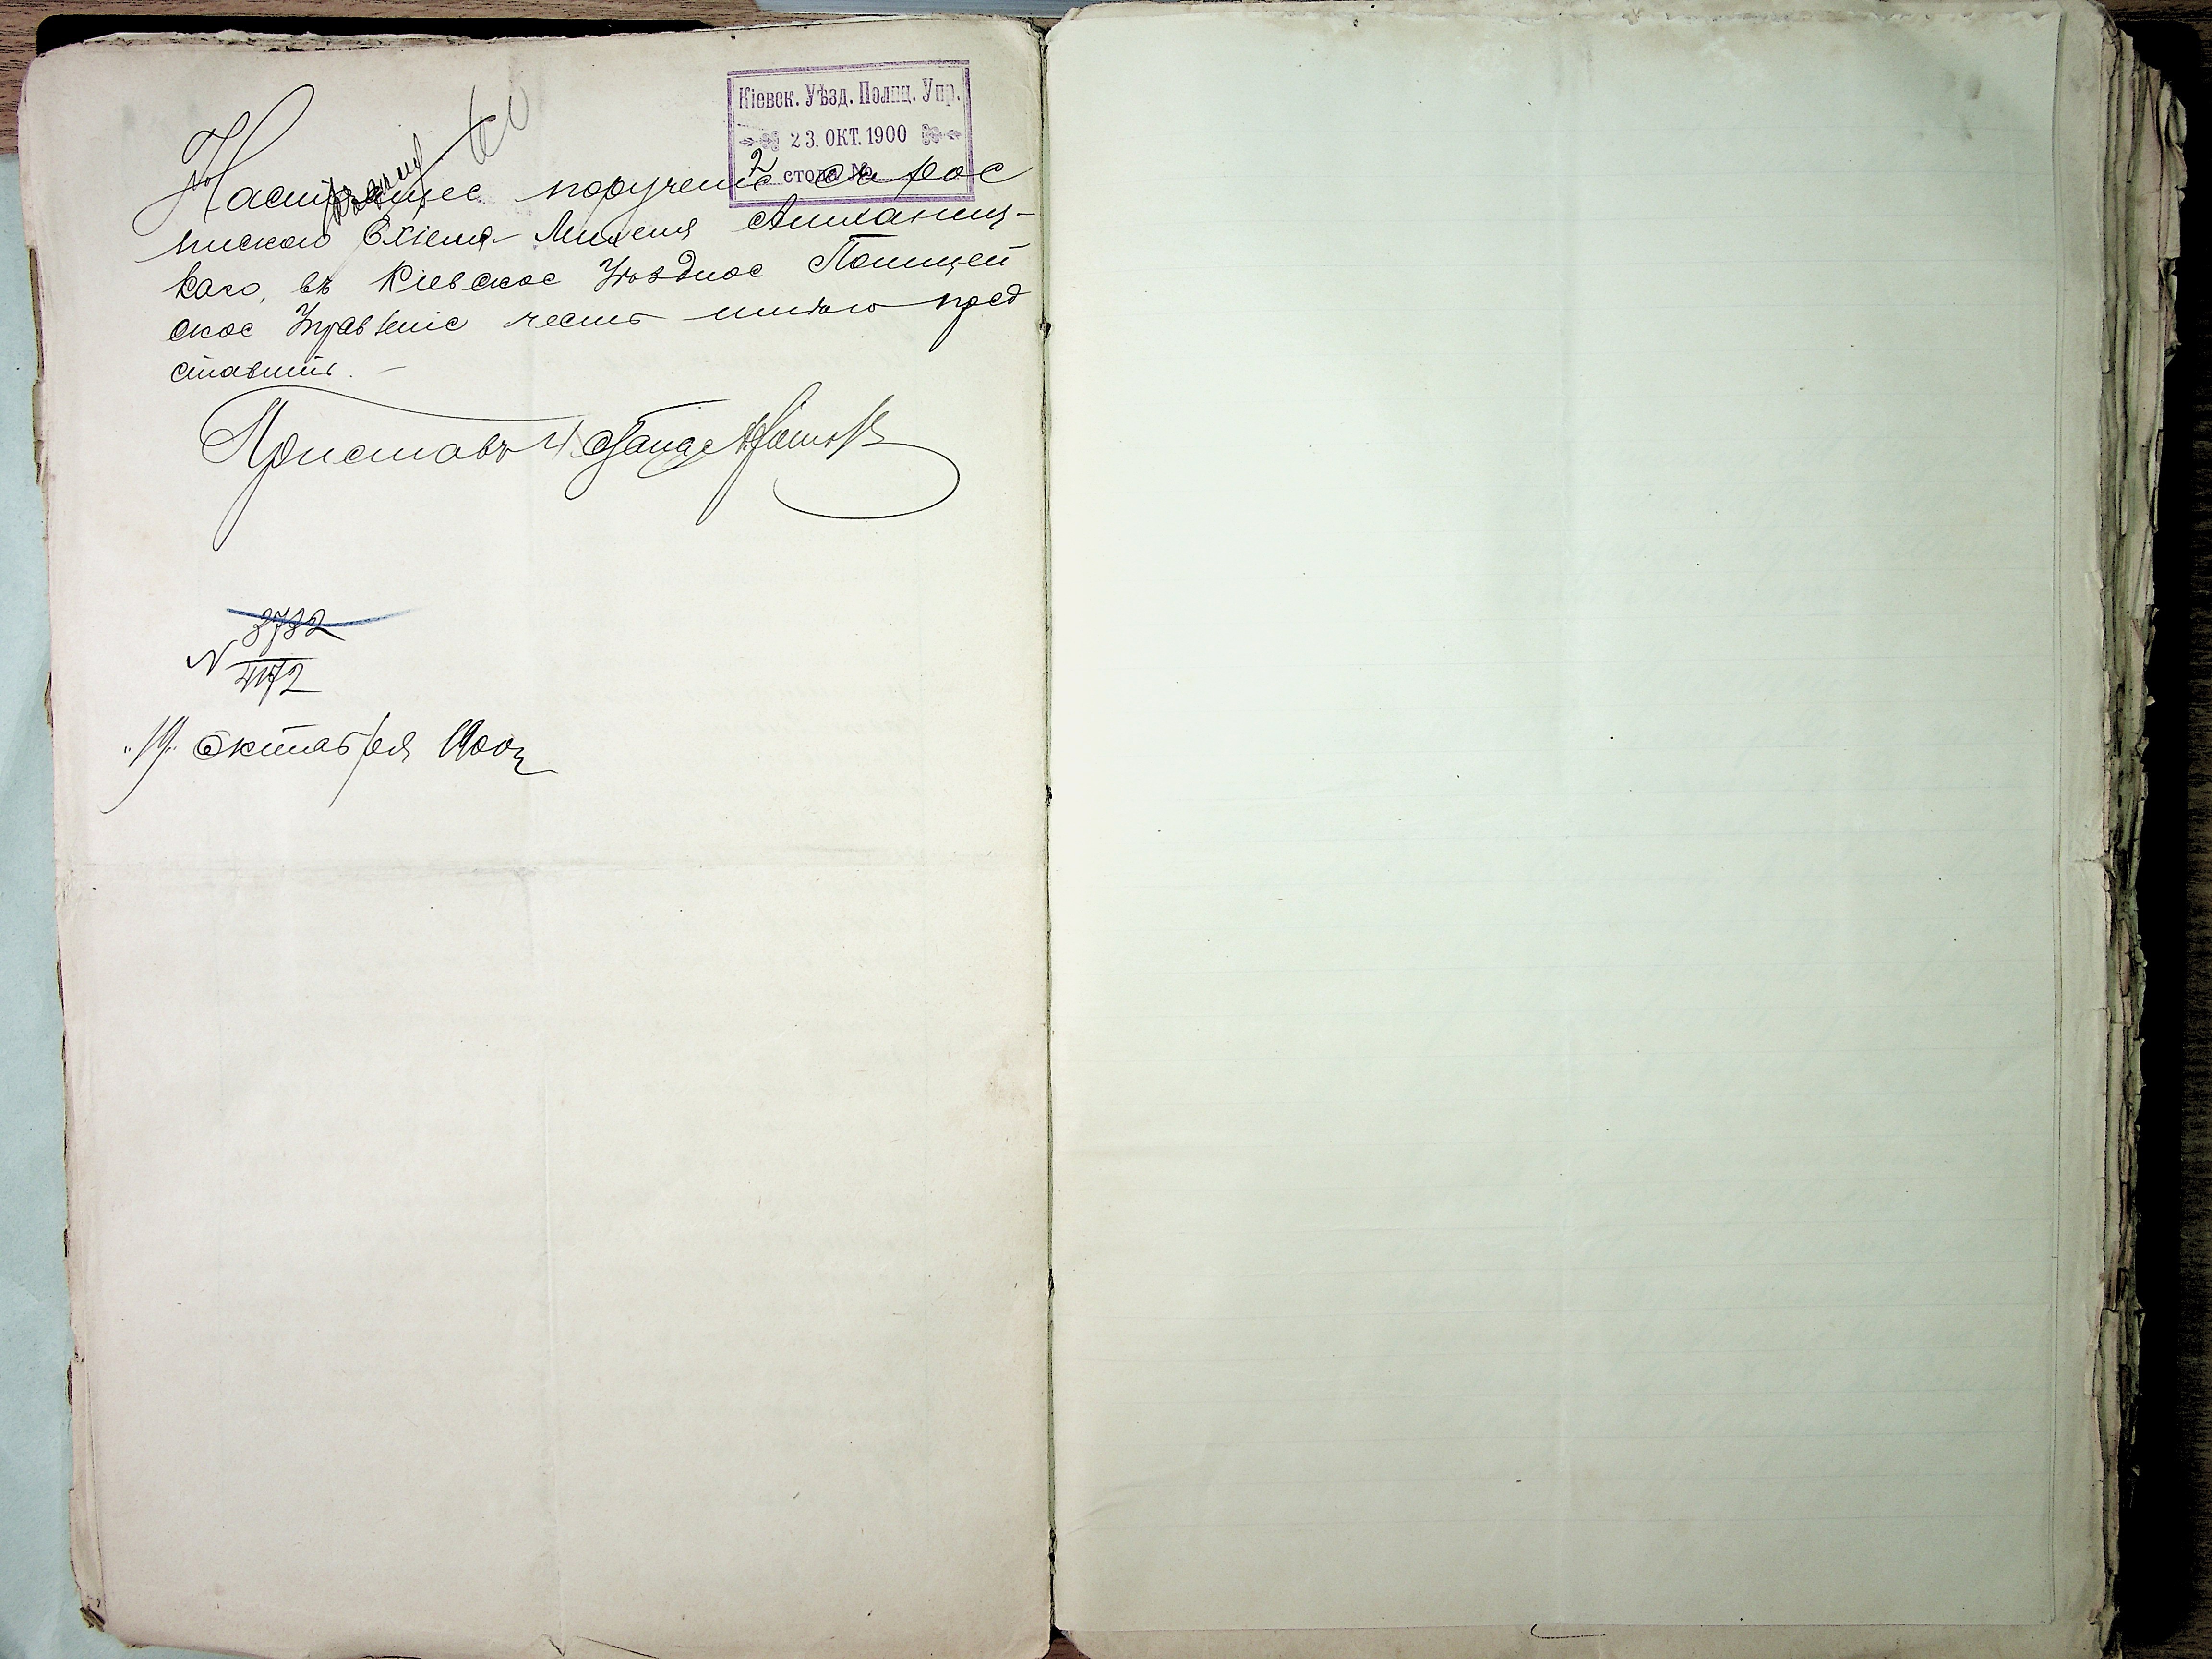 Кіевск. Уѣзд. Полиц. Упр.
23. ОКТ. 1900
2 стола №
Настоящее порученіе съ рос
пискою Ехіеля-Михеля
каго, въ Кіевское Уѣздное Полицей
ское Управленіе честь имѣю пред
ставить. –
Приставъ 4 Стана
N 3732
4172
"19" Октября 1900 г